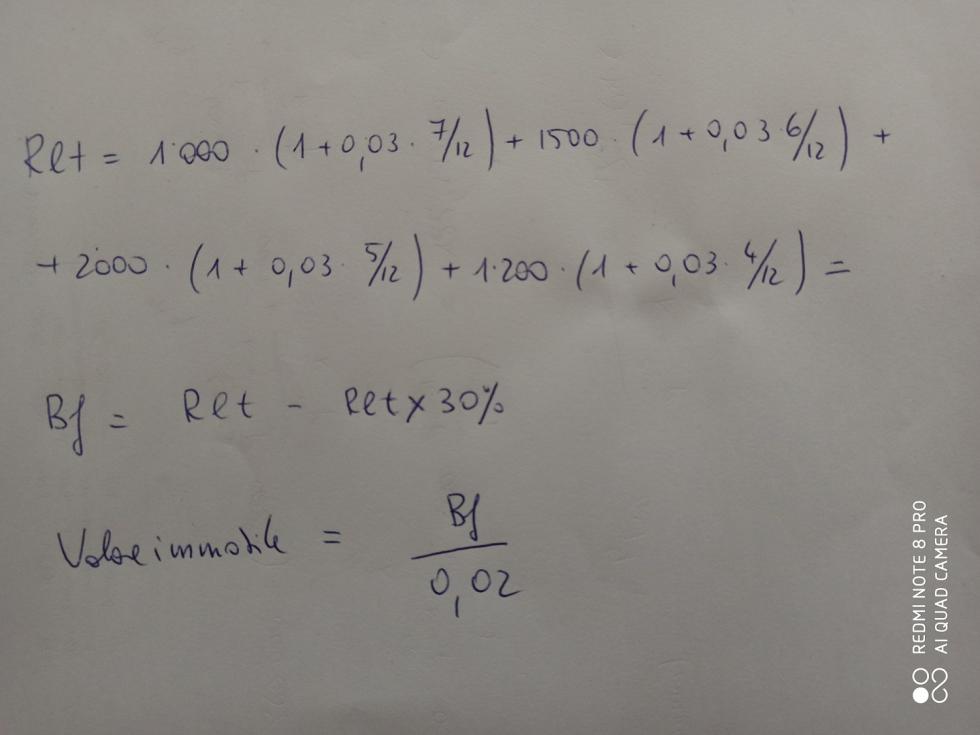 Rlt = 1'000 · (1+0,03· 7/12) + 1500 · (1+0,03 6/12) +
+ 2'000 · (1+ 0,03· 5/12) + 1·200 · (1 + 0,03· 4/12) =
Bf = Rlt - Rlt x 30%
Valore immobile = Bf / 0,02
REDMI NOTE 8 PRO
AI QUAD CAMERA